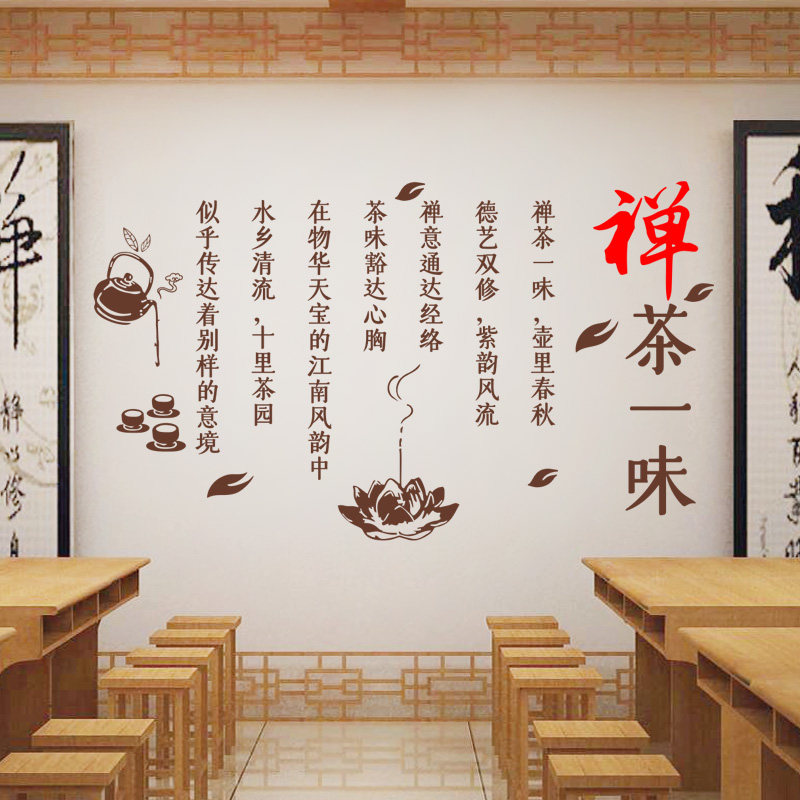 禅茶一味
禅茶一味，壶里春秋
德艺双修，紫韵风流
禅意通达经络
茶味豁达心胸
在物华天宝的江南风韵中
水乡清流，十里茶园
似乎传达着别样的意境
静
静以修